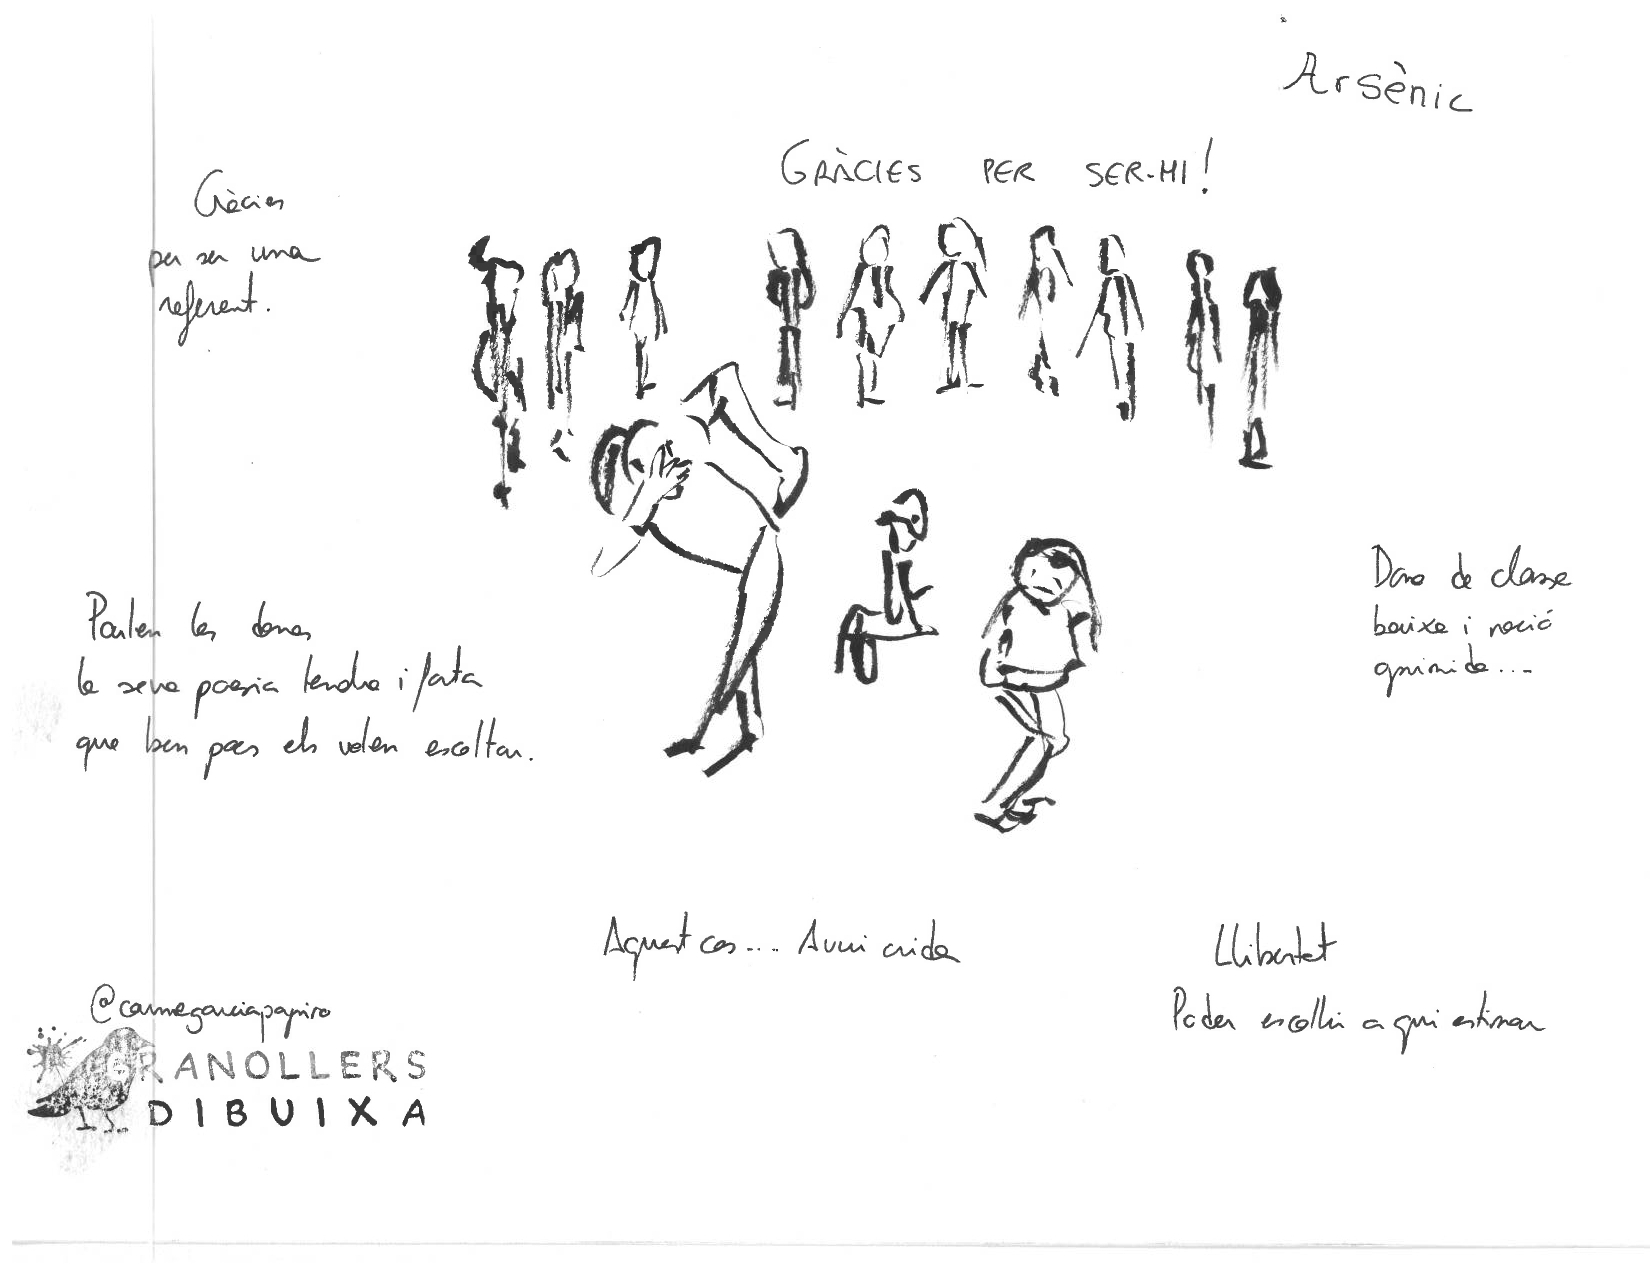 Arsènic
GRÀCIES PER SER-HI!
Gràcies
per ser una
referent.
Parlen les dones
la seva poesia tendra i forta
que ben pocs els volen escoltar.
Dona de classe
baixa i nació
oprimida...
Aquest cos.... Avui crida
Llibertat
Poder escollir a qui estimar
@carmegarciapapiro
GRANOLLERS
DIBUIXA